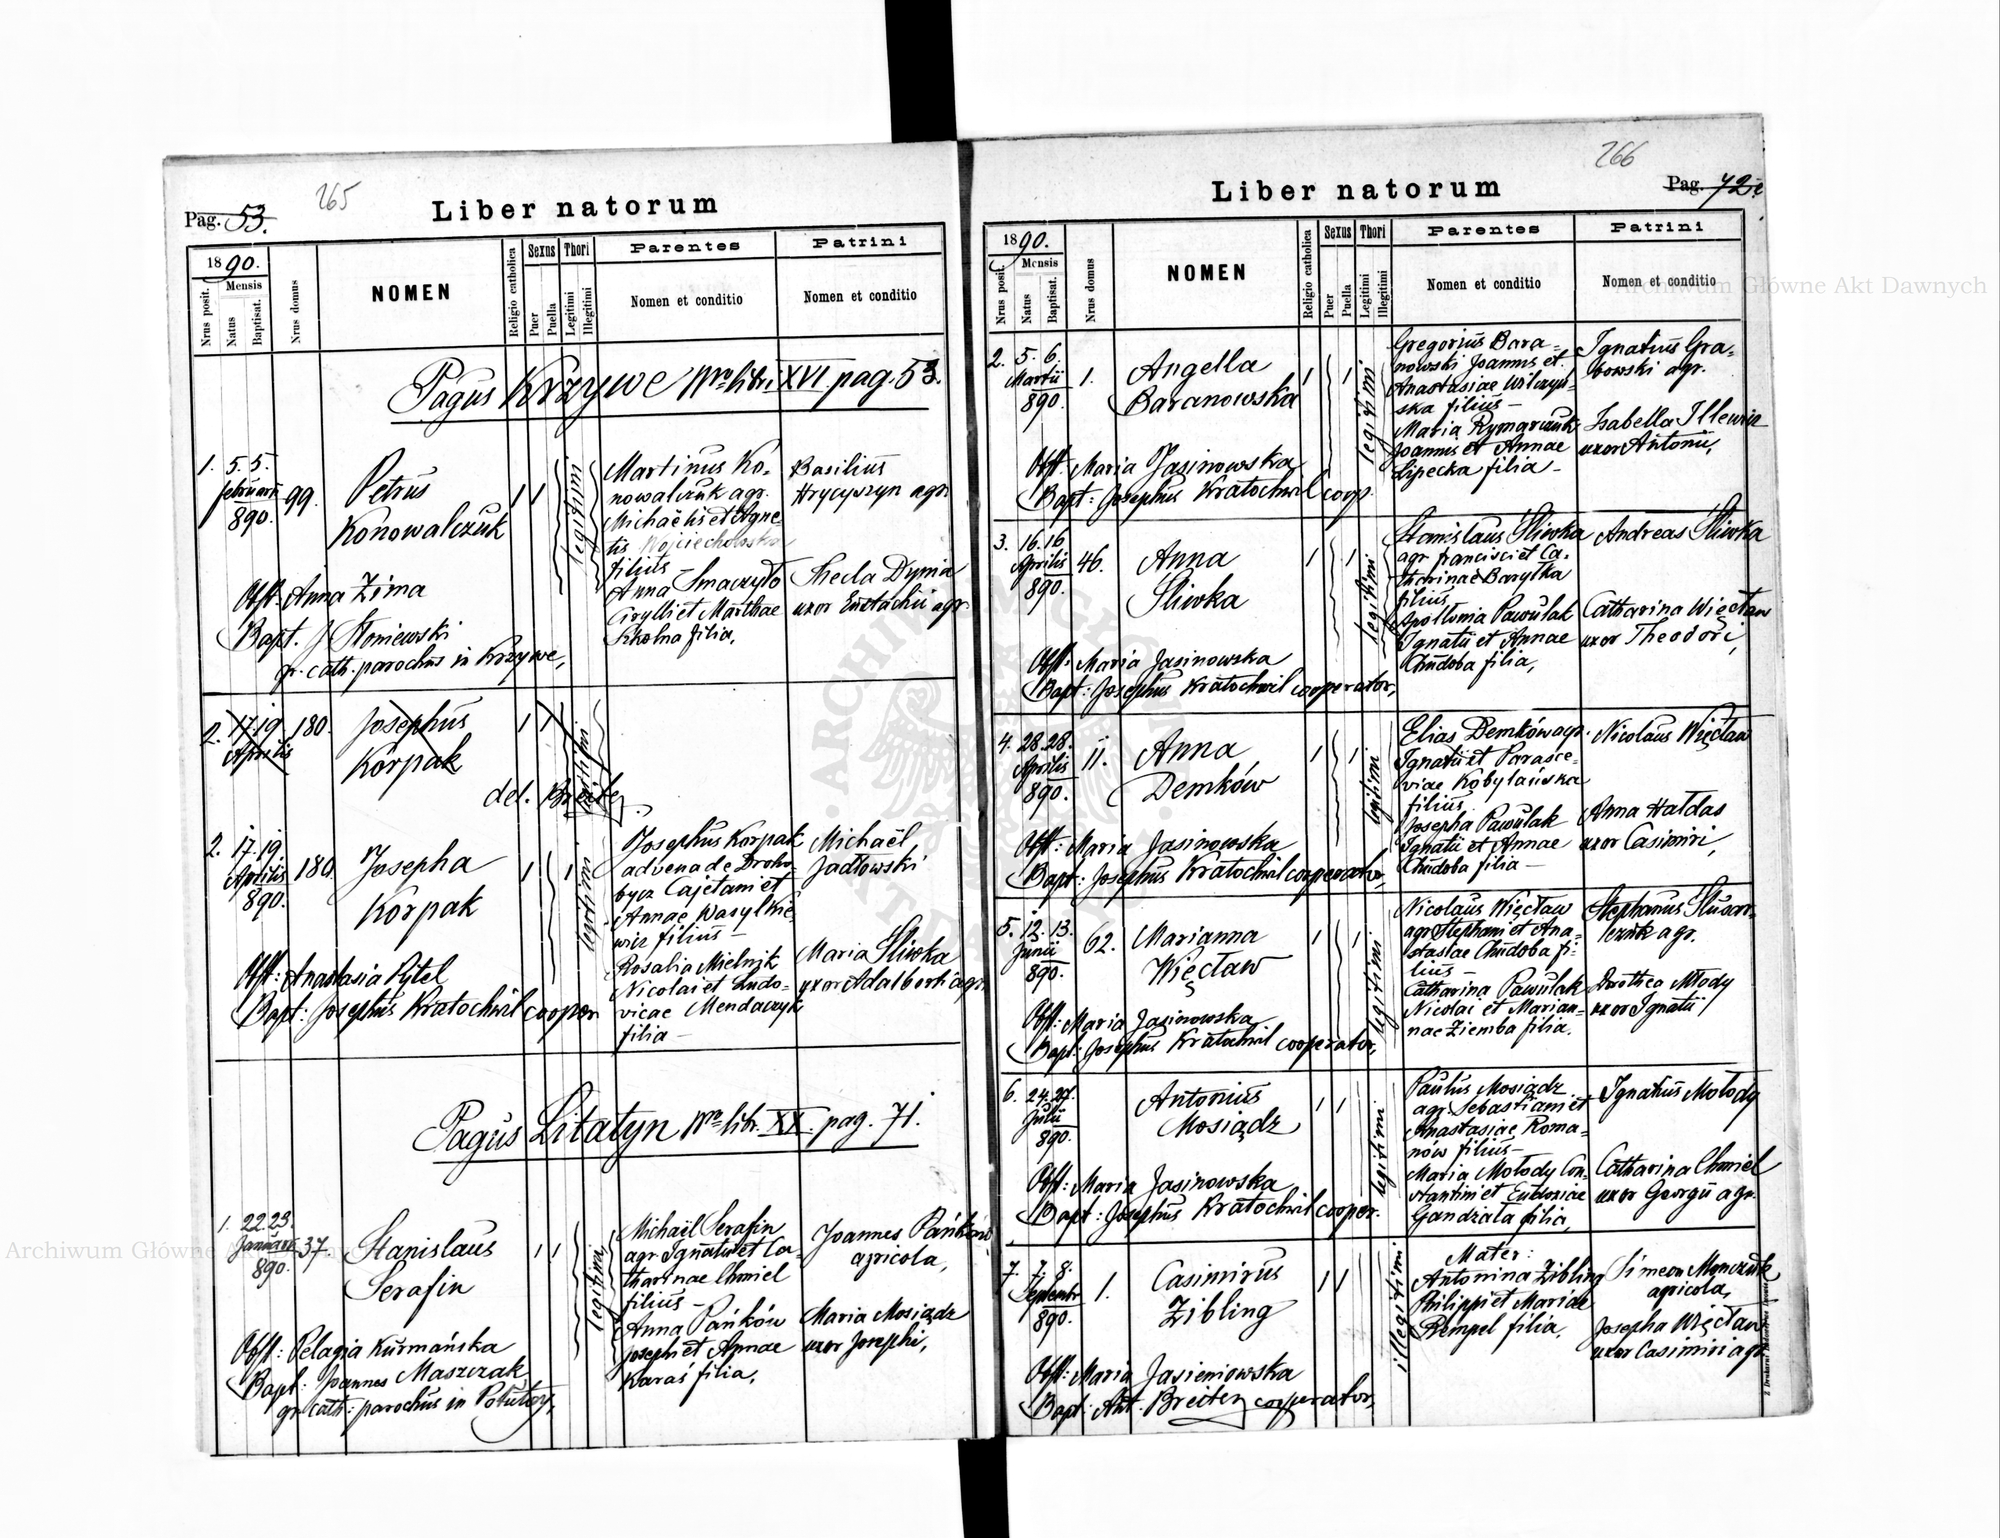 265
Liber natorum
Pag. 53.
1890.
Nrus posit.
Mensis
Natus
Baptisat.
Nrus domus
NOMEN
Religio catholica
Sexus
Puer
Puella
Thori
Legitimi
Illegitimi
Parentes
Nomen et conditio
Patrini
Nomen et conditio
Pagus Krzywe Nro libri XVI pag. 53.
1. 5. 5. Februarii 890. 99.
Petrus
Konowalczuk
1 1
legitimi
Martinus Ko-
nowalczuk agr.
Michaëlis et Agne-
tis Wojciechowska
filius -
Anna Smaczyło
Cyrylli et Marthae
Szkolna filia,
Basilius
Hrycyszyn agr.
Thecla Dynia
uxor Eustachii agr.
Obst. Anna Zima
Bapt. J Słoniewski
gr. cath. parochus in Krzywe,
2. 17. 19 Aprilis 180.
Josephus
Korpak
1 1
legitimi
del. Breiter
2. 17. 19 Aprilis 890. 180.
Josepha
Korpak
1 1
legitimi
Josephus Korpak
advena de Droho-
bycz Cajetani et
Annae Wasylkie-
wicz filius -
Rosalia Mielnik
Nicolai et Ludo-
vicae Mendaczyk
filia -
Michaël
Jadłowski
Maria Śliwka
uxor Adalberti agr.
Obst: Anastasia Pytel
Bapt: Josephus Kratochwil cooper.
Pagus Litatyn Nro libr. XX. pag. 71.
1. 22. 23. Januarii 890. 37.
Stanislaus
Serafin
1 1
legitimi
Michaël Serafin
agr. Ignatii et Ca-
tharinae Chmiel
filius -
Anna Pańków
Josephi et Annae
Karaś filia,
Joannes Pańków
agricola,
Maria Mosiądz
uxor Josephi,
Obst: Pelagia Kurmańska
Bapt: Joannes Maszczak
gr. cath: parochus in Potutory,
266
Liber natorum
Pag. 72
1890.
Nrus posit.
Mensis
Natus
Baptisat.
Nrus domus
NOMEN
Religio catholica
Sexus
Puer
Puella
Thori
Legitimi
Illegitimi
Parentes
Nomen et conditio
Patrini
Nomen et conditio
2. 5. 6. Martii 890. 1.
Angella
Baranowska
1 1
legitimi
Gregorius Bara-
nowski Joannis et
Anastasiae Wilczyń-
ska filius -
Maria Rymarczuk
Joannis et Annae
Lipecka filia -
Ignatius Gra-
bowski agr.
Isabella Illewicz
uxor Antonii,
Obst: Maria Jasinowska
Bapt: Josephus Kratochwil coop.
3. 16. 16 Aprilis 890. 46.
Anna
Śliwka
1 1
legitimi
Stanislaus Śliwka
agr. Francisci et Ca-
tharinae Baryłka
filius,
Apollonia Pawulak
Ignatii et Annae
Chudoba filia,
Andreas Śliwka
Catharina Więcław
uxor Theodori,
Obst: Maria Jasinowska
Bapt: Josephus Kratochwil cooperator,
4. 28. 28. Aprilis 890. 11.
Anna
Demków
1 1
legitimi
Elias Demków agr.
Ignatii et Parasce-
viae Kobylańska
filius.
Josepha Pawulak
Ignatii et Annae
Chudoba filia -
Nicolaus Więcław
Anna Hałdas
uxor Casimiri,
Obst: Maria Jasinowska
Bapt: Josephus Kratochwil cooperator,
5. 12. 13. Junii 890. 62.
Marianna
Więcław
1 1
legitimi
Nicolaus Więcław
agr. Stephani et Ana-
stasiae Chudoba fi-
lius -
Catharina Pawulak
Nicolai et Marian-
nae Ziemba filia.
Stephanus Ślusar-
czuk agr.
Dorothea Młody
uxor Ignatii
Obst: Maria Jasinowska
Bapt: Josephus Kratochwil cooperator,
6. 24. 27. Julii 890.
Antonius
Mosiądz
1 1
legitimi
Paulus Mosiądz
agr. Sebastiani et
Anastasiae Roma-
nów filius -
Maria Mołody Con-
stantini et Eudoxiae
Gandziała filia,
Ignatius Mołody
Catharina Chmiel
uxor Georgii agr.
Obst: Maria Jasinowska
Bapt: Josephus Kratochwil cooper.
7. 7. 8. Septembr 890. 1.
Casimirus
Zibling
1 1
illegitimi
Mater:
Antonina Zibling
Philippi et Mariae
Rempel filia,
Simeon Monczuk
agricola,
Josepha Więcław
uxor Casimiri agr.
Obst: Maria Jasieniowska
Bapt: Ant. Breiter cooperator,
Archiwum Główne Akt Dawnych
Archiwum Główne Akt Dawnych